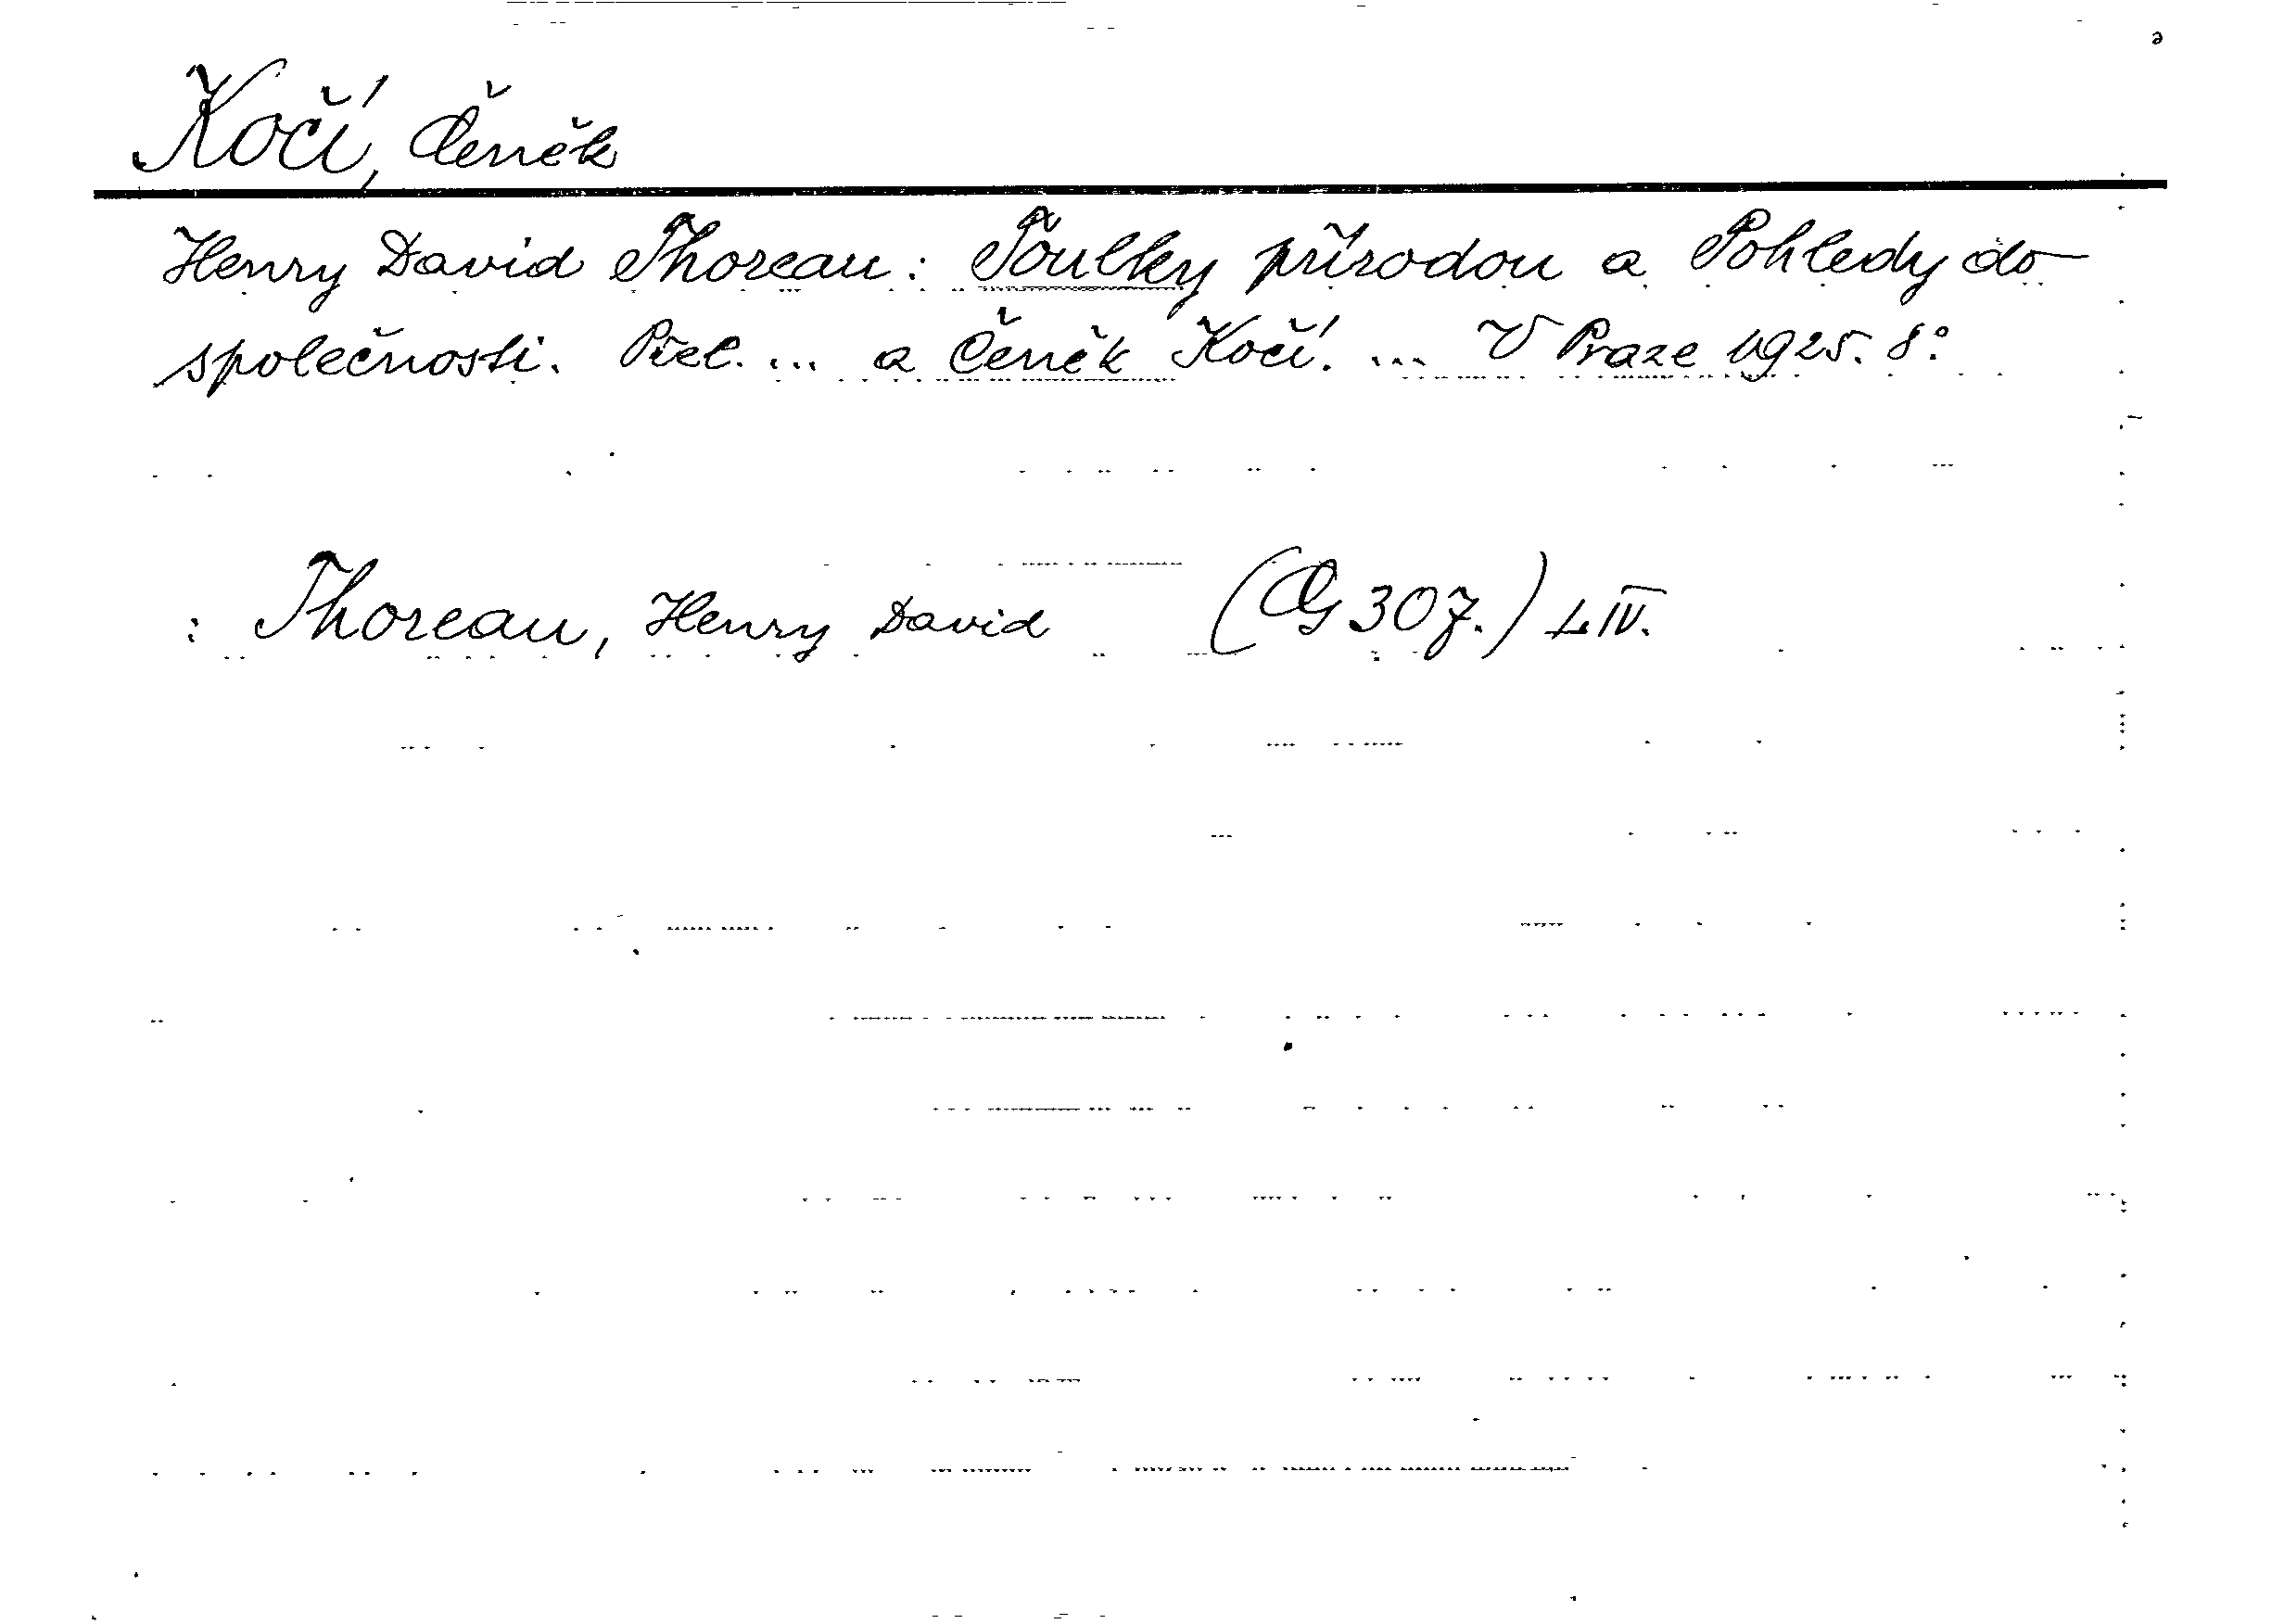 Kočí, Čeněk
Henry David Thoreau: Toulky přírodou a Pohledy do
společnosti. Přel. ... a Čeněk Kočí. ... V Praze 1925. 8°.
: Thoreau, Henry David (G 307.) L IV.